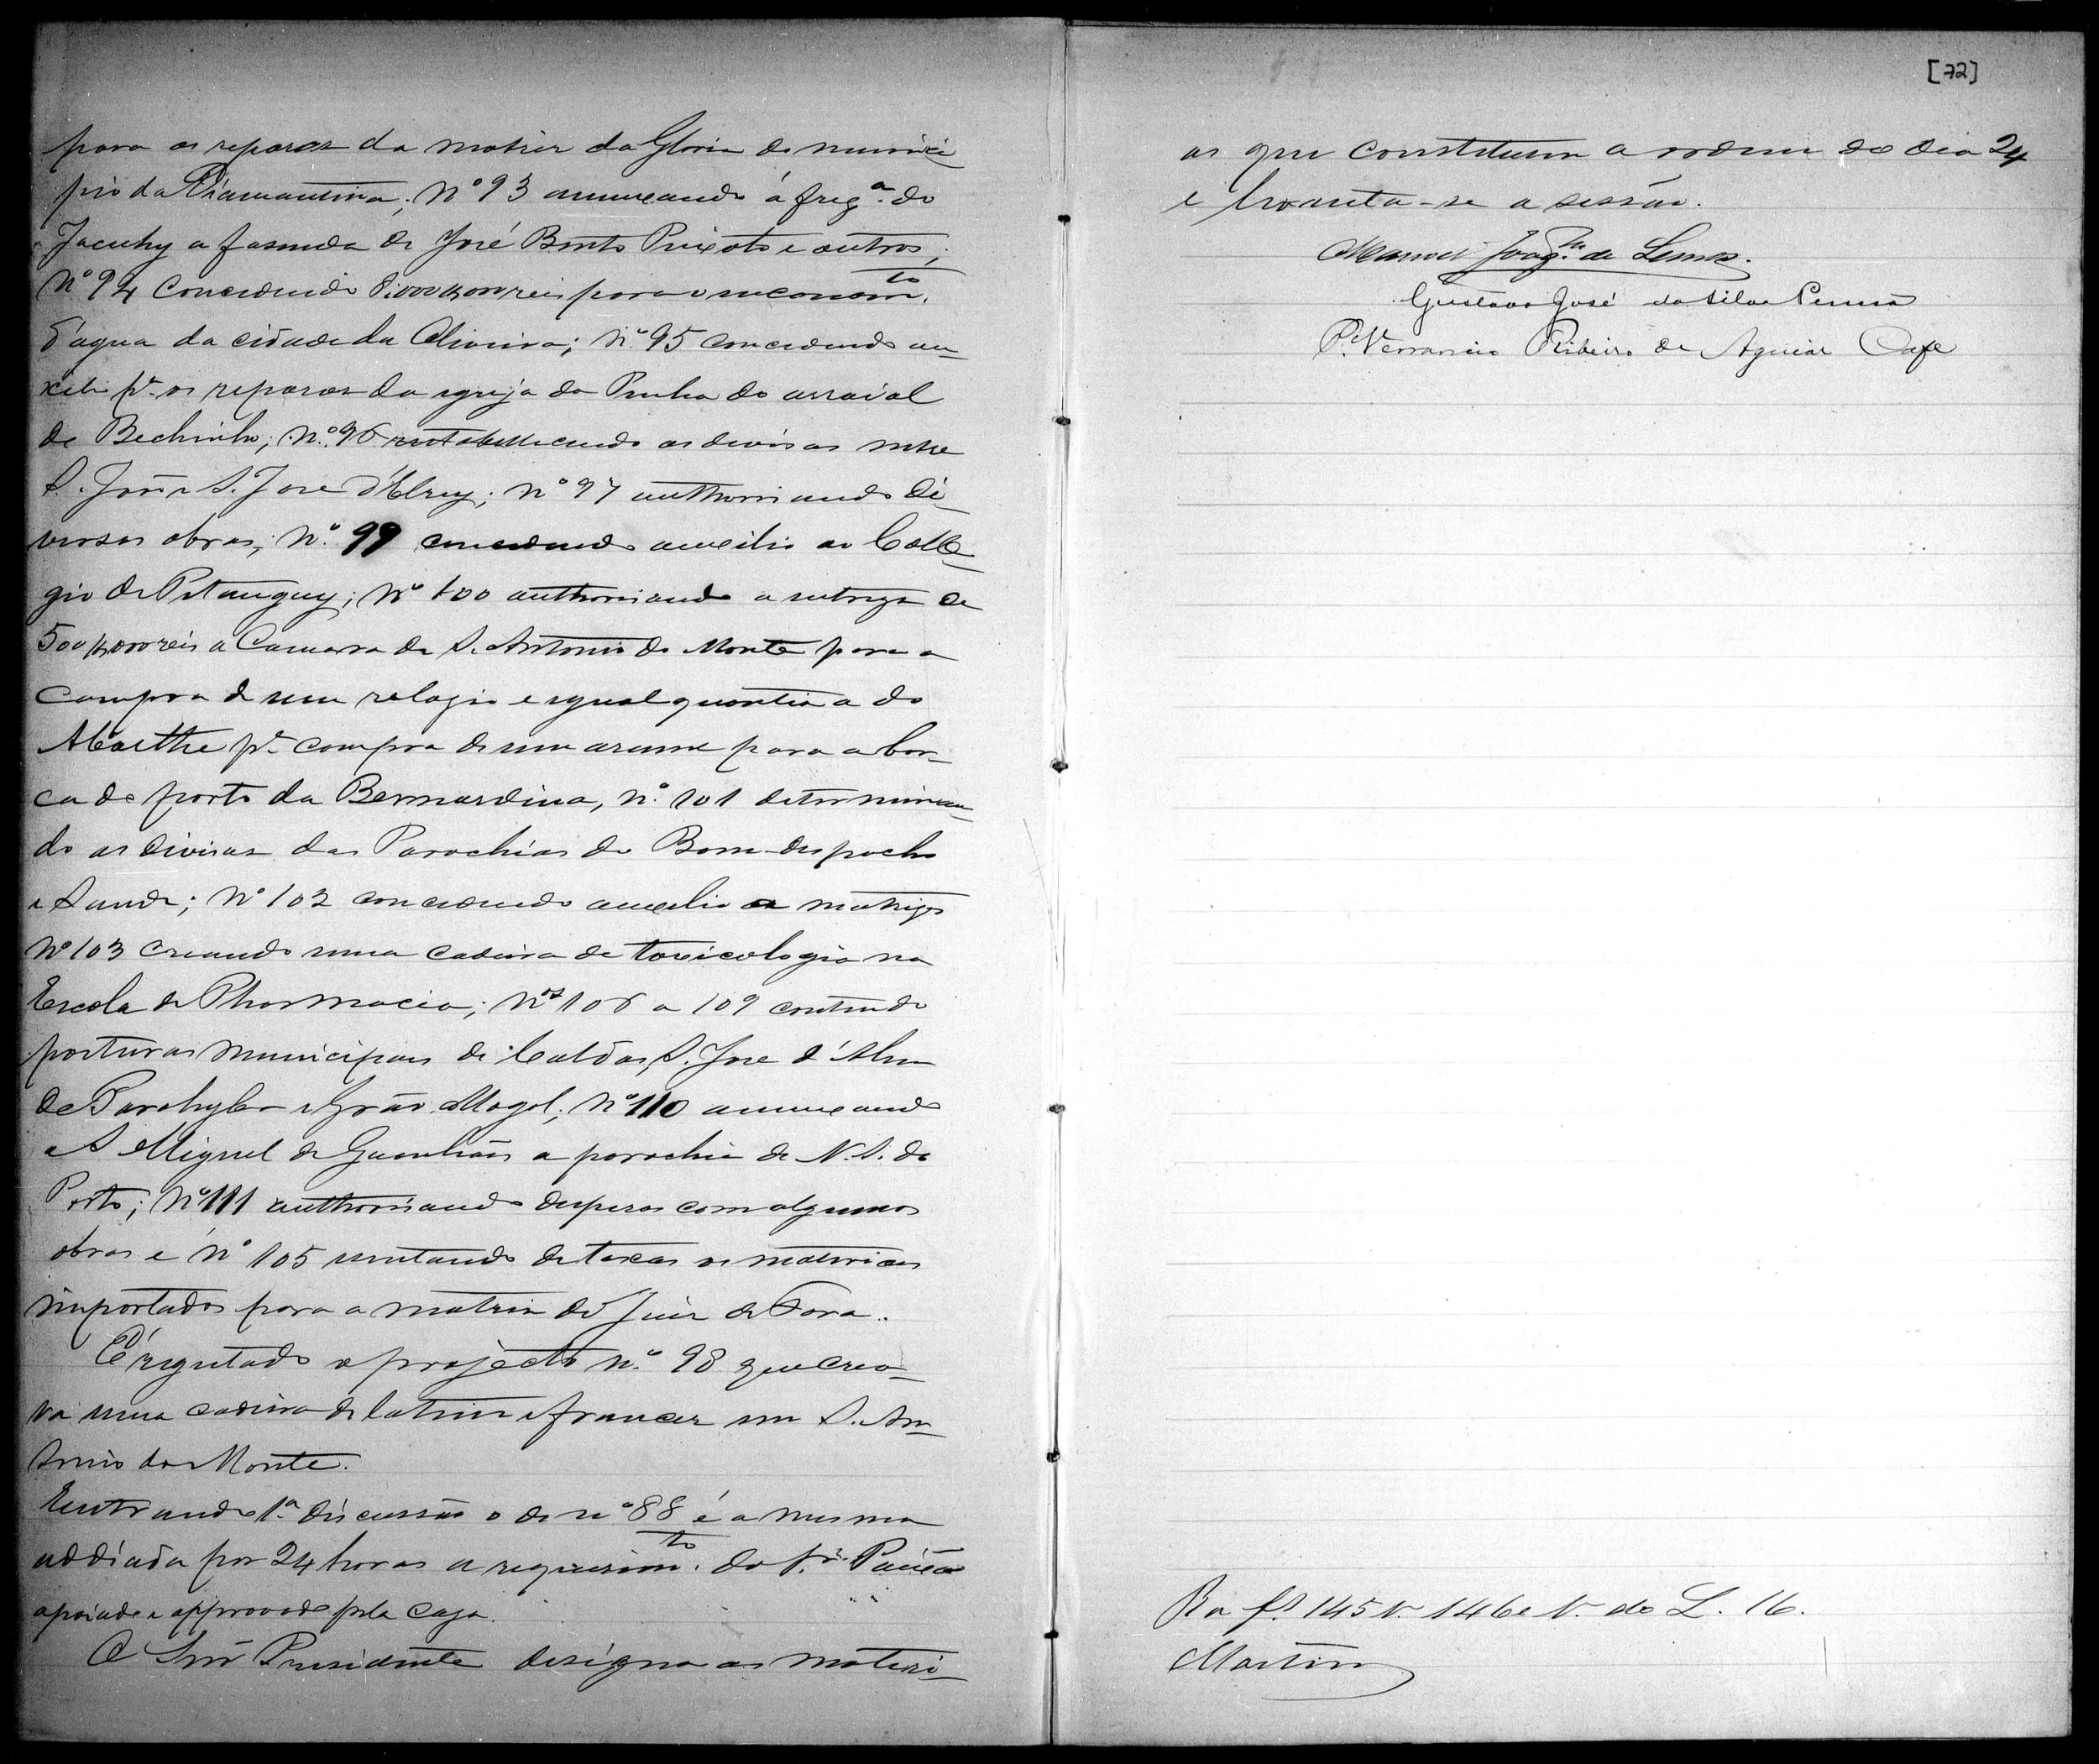 para os reparos da matriz da Gloria do munici
pio da Diamantina; Nº 93 annexando á freg.ª do
Jacuhy a fazenda de José Bento Peixoto e outros;
Nº 94 concedendo 8:000$000 reis para o encanam.to
d'agua da cidade da Oliveira; Nº 95 concedendo au-
xilio p.ª os reparos da igreja da Penha do arraial
do Bechinho; Nº 96 restabellecendo as divisas entre
S. João e S. José d'Elrey; nº 97 authorisando di-
versas obras; Nº 99 concedendo auxilio ao Colle-
gio de Pitanguy; Nº 100 authorisando a entrega de
500$000 reis a Camara de S. Antonio do Monte para a
compra de um relogio e igual quantia a do
Abaethe p.ª compra de um arame para a bar-
ca do porto da Bernardina, nº 101 determinan-
do as divisas das Parochias do Bom-despacho
e Saude; Nº 102 concedendo auxilio a matrizes
Nº 103 creando uma cadeira de toxicologia na
Escola de Pharmacia; Nos 106 a 109 contendo
posturas municipaes de Caldas, S. José d'Alem
de Parahyba e Grão Mogol; Nº 110 annexando
a S Miguel de Guanhães a parochia de N. S. do
Porto; Nº 111 authorisando despesas com algumas
obras e nº 105 isentando de taxas os materiaes
importados para a matriz do Juiz de Fora.
É regeitado o projecto nº 98 que crea-
va uma cadeira de latim e francez em S. An-
tonio do Monte.
Entrando 1ª discussão o de nº 88 é a mesma
addiada por 24 horas a requerim.to do Sr. Paixão
apoiado e approvado pela casa.
O Snr Presidente designa as materi-
[72]
as que constituem a ordem do dia 24
e levanta-se a sessão.
Manoel Joaq.m de Lemos.
Gustavo José da Silva Penna
P.e Venancio Ribeiro de Aguiar Café
Ra fs 145 v. 146 e v. do L. 16.
Martins